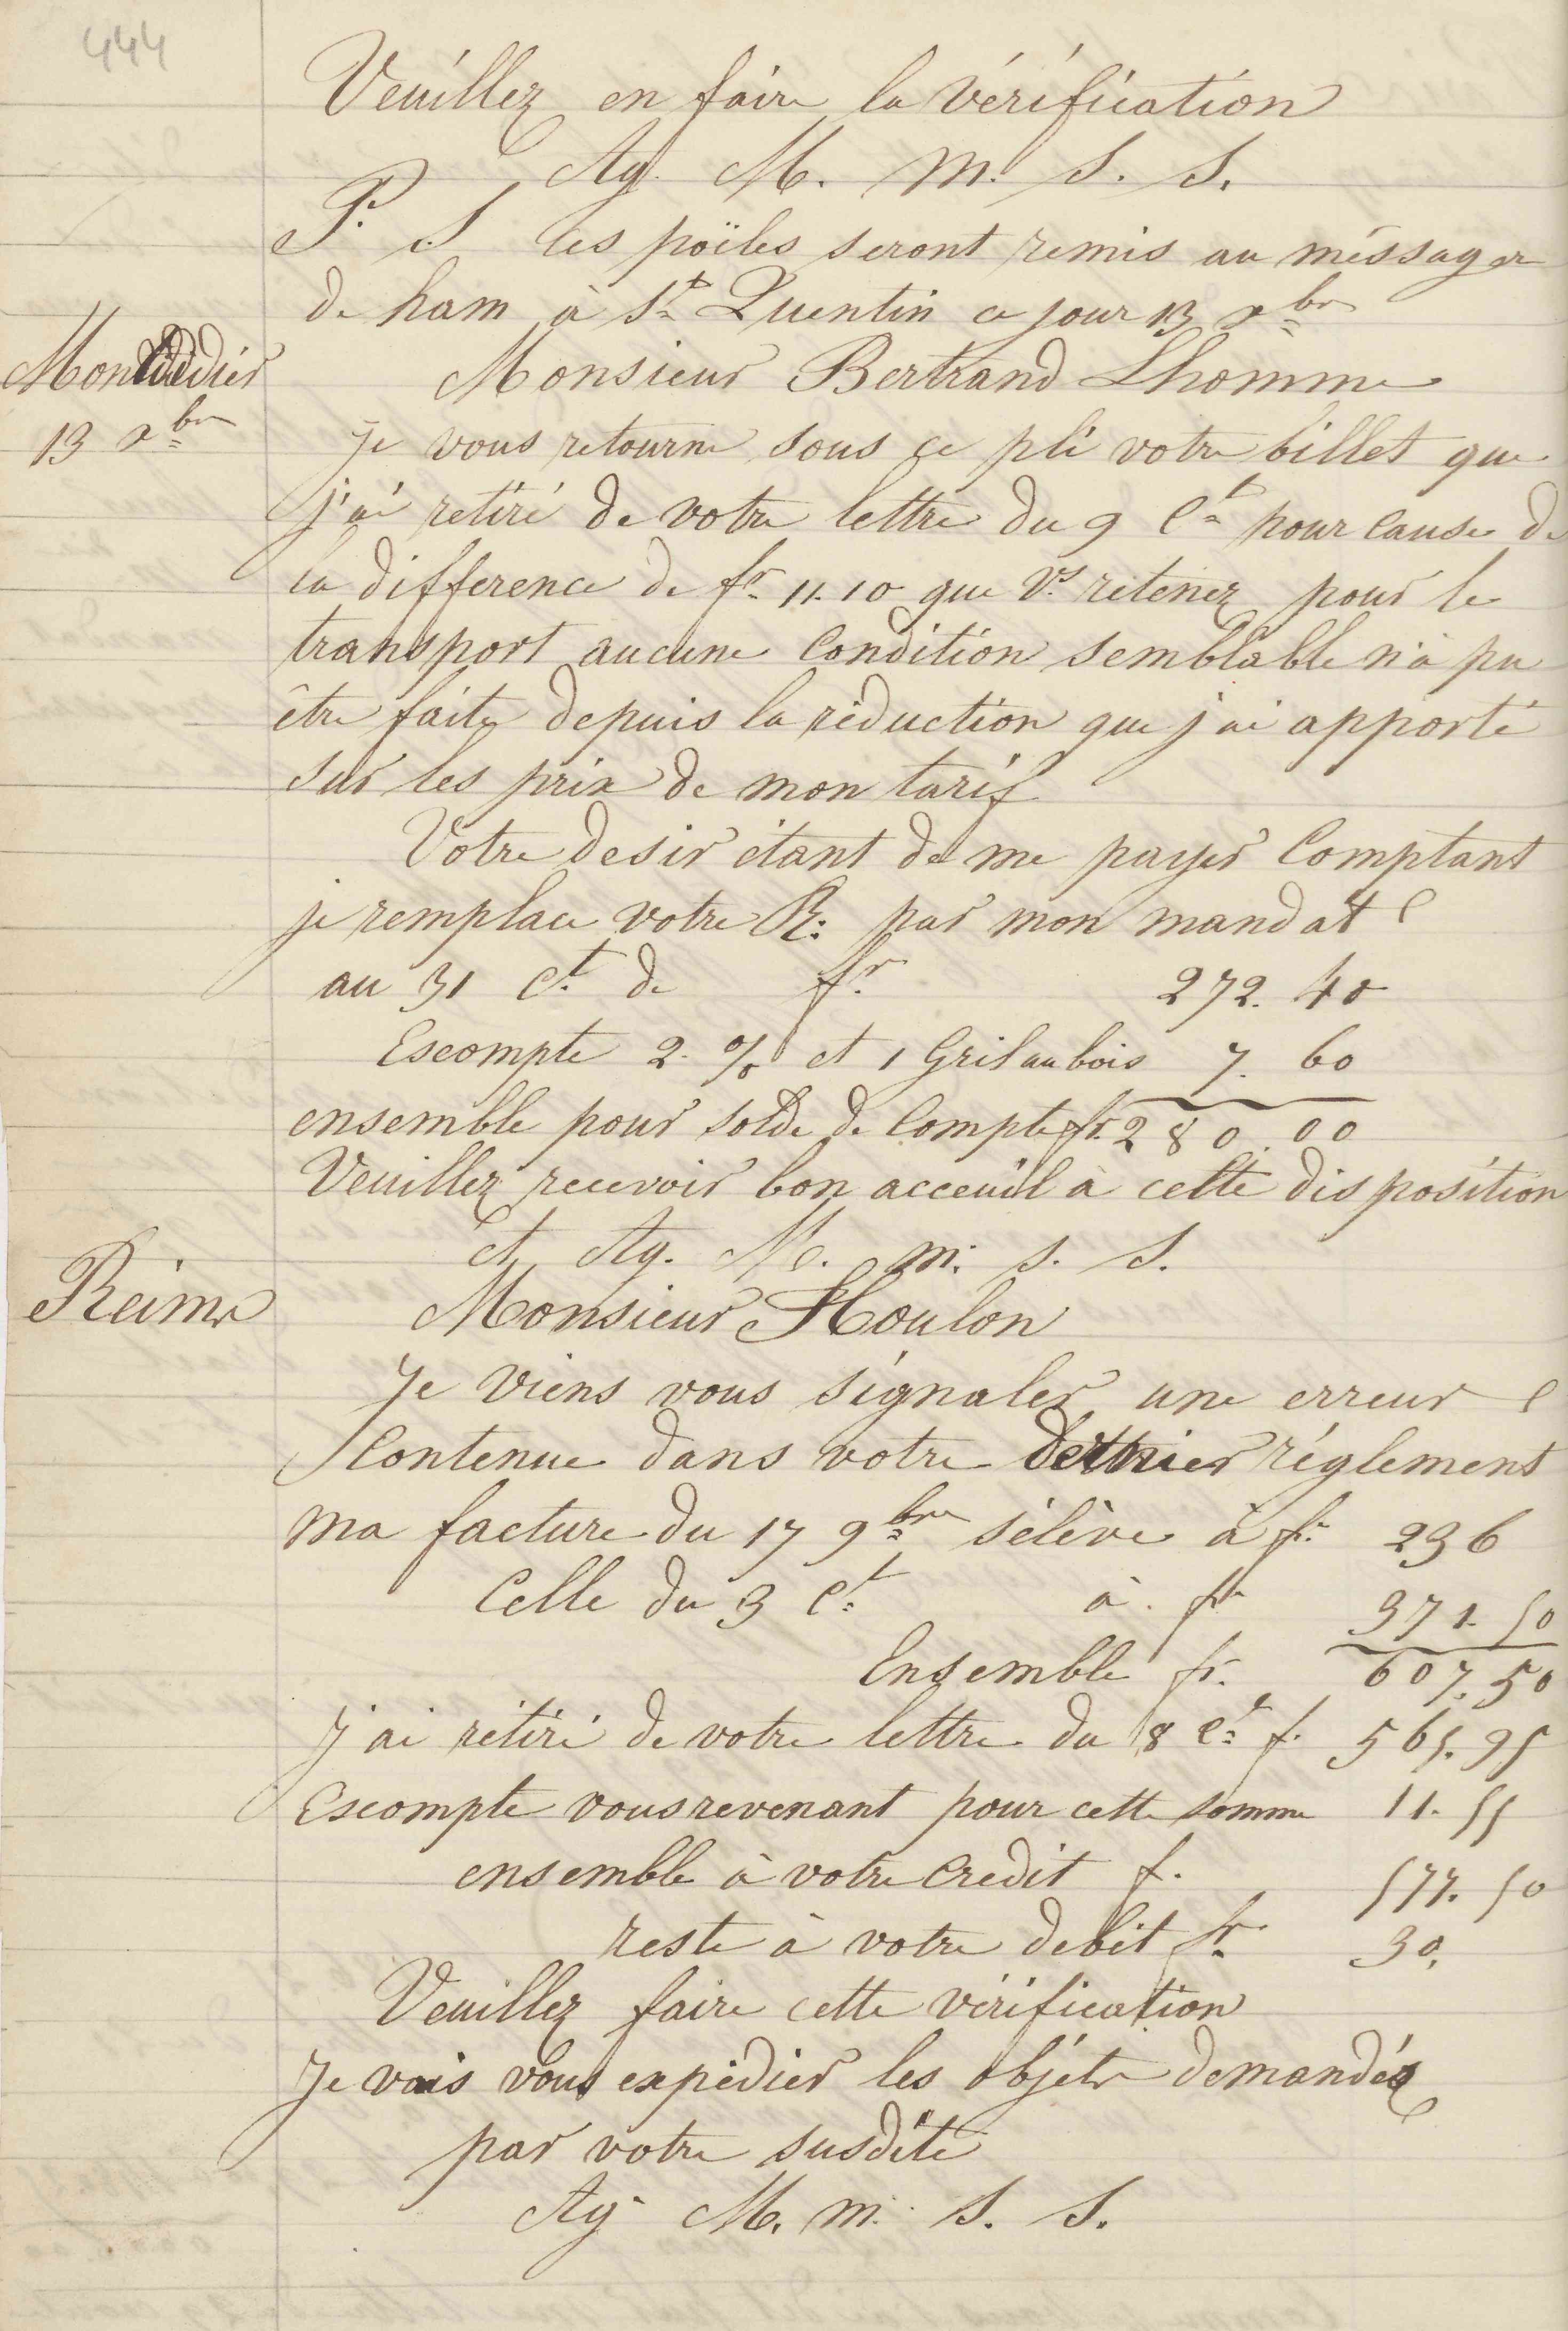 444
Veuillez en faire la vérification
Ag. M. m. S. S.
P. S les poïles seront remis au méssager
de ham à St Quentin ce jour 13 xbre
Montdidier
Monsieur Bertrand Lhomme
13 xbre
Je vous retourne sous ce pli votre billet que
j'ai retiré de votre lettre du 9 Ct pour cause de
la difference de fr. 11.10 que Vs retenez pour le
transport aucune Condition semblable n'a pu
être faite depuis la réduction que j'ai apporté
sur les prix de mon tarif
Votre desir étant de me payer Comptant
je remplace votre R. par mon mandat
au 31 Ct de fr. 272. 40
Escompte 2. % et 1 Gril au bois 7. 60
ensemble pour solde de Compte fr. 280.00
Veuillez recevoir bon acceuil à cette disposition
et Ag. M. m. s. S.
Reims
Monsieur Houlon
Je viens vous signaler une erreur
Contenue dans votre dernier réglement
ma facture du 17 9bre s'élève à fr. 236
Celle du 3 Ct à fr 371. 50
Ensemble fr. 607. 50
J'ai retiré de votre lettre du 8 Ct f. 565. 95
Escompte vous revenant pour cette somme 11. 55
ensemble à votre Credit f. 577. 50
reste à votre debit fr. 30.
Veuillez faire cette vérification
Je vais vous expédier les objets demandés
par votre susdite
Ag M. m. S. S.